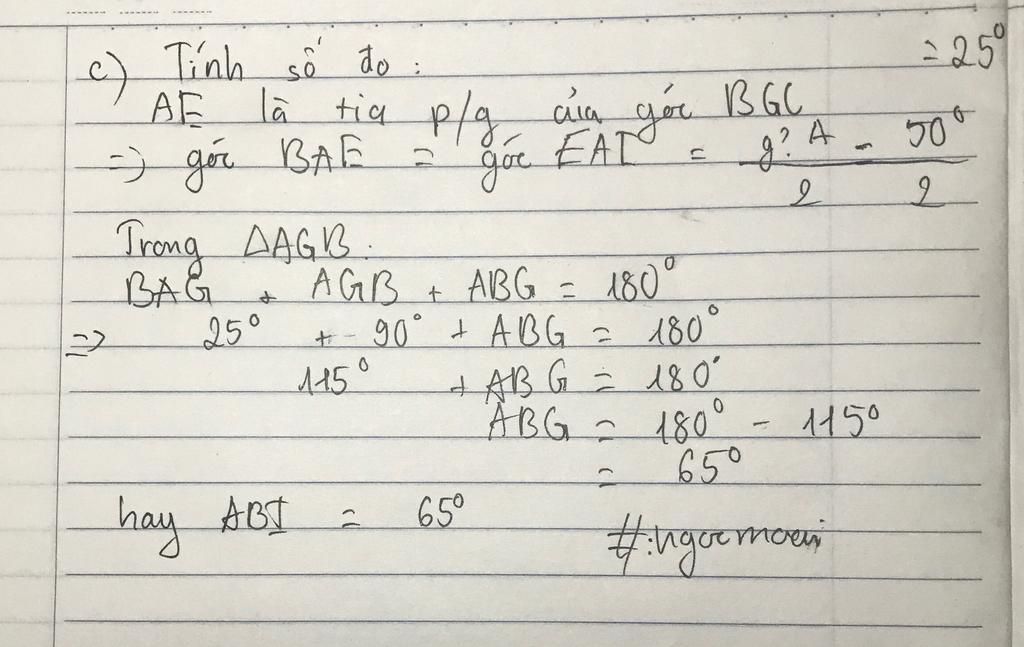 c) Tính số đo : = 25°
AE là tia p/g của góc BGC
=> góc BAE = góc EAI = g? A/2 = 50°/2
Trong ΔAGB.
BAG + AGB + ABG = 180°
=> 25° + 90° + ABG = 180°
115° + ABG = 180°
ABG = 180° - 115°
= 65°
hay ABI = 65°